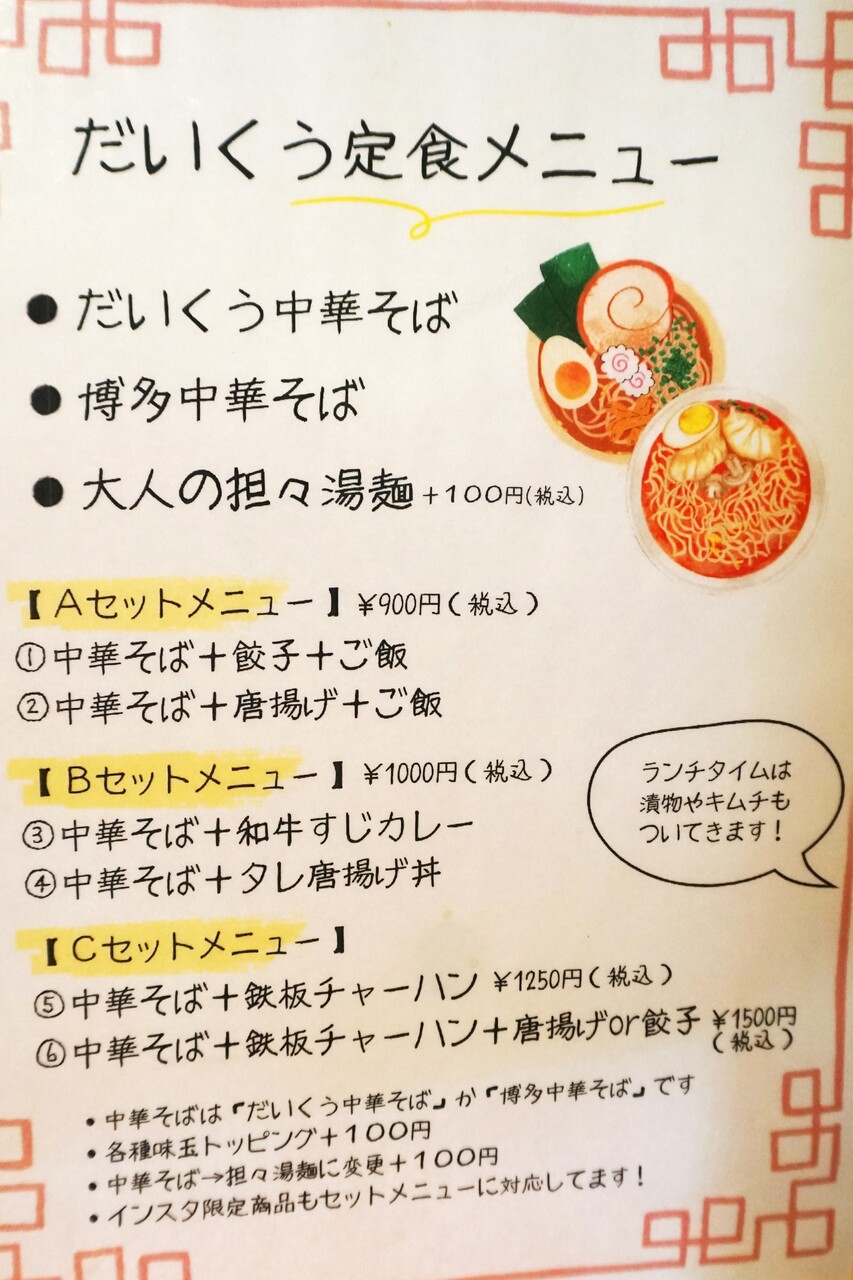 だいくう定食メニュー
●だいくう中華そば
●博多中華そば
●大人の担々湯麺+100円(税込)
【Aセットメニュー】¥900円(税込)
①中華そば+餃子+ご飯
②中華そば+唐揚げ+ご飯
【Bセットメニュー】¥1000円(税込)
③中華そば+和牛すじカレー
④中華そば+タレ唐揚げ丼
ランチタイムは
漬物やキムチも
ついてきます!
【Cセットメニュー】
⑤中華そば+鉄板チャーハン ¥1250円(税込)
⑥中華そば+鉄板チャーハン+唐揚げor餃子 ¥1500円
(税込)
•中華そばは『だいくう中華そば』か『博多中華そば』です
•各種味玉トッピング+100円
•中華そば→担々湯麺に変更+100円
•インスタ限定商品もセットメニューに対応してます!